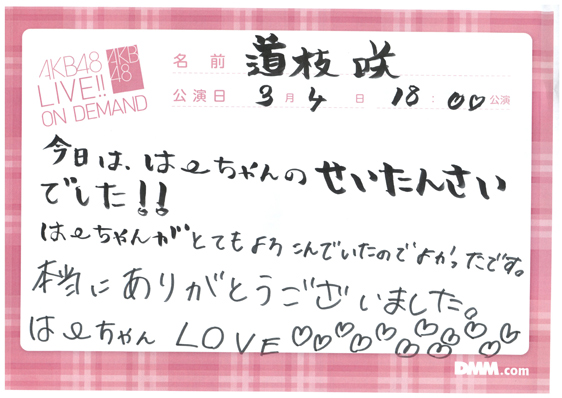 AKB48
LIVE!!
ON DEMAND
AKB
48
名前 道枝咲
公演日 3月4日 18:00公演
今日は、はーちゃんのせいたんさい
でした!!
はーちゃんがとてもよろこんでいたのでよかったです。
本当にありがとうございました。
はーちゃん LOVE♡♡♡♡♡♡♡♡♡♡♡♡
DMM.com